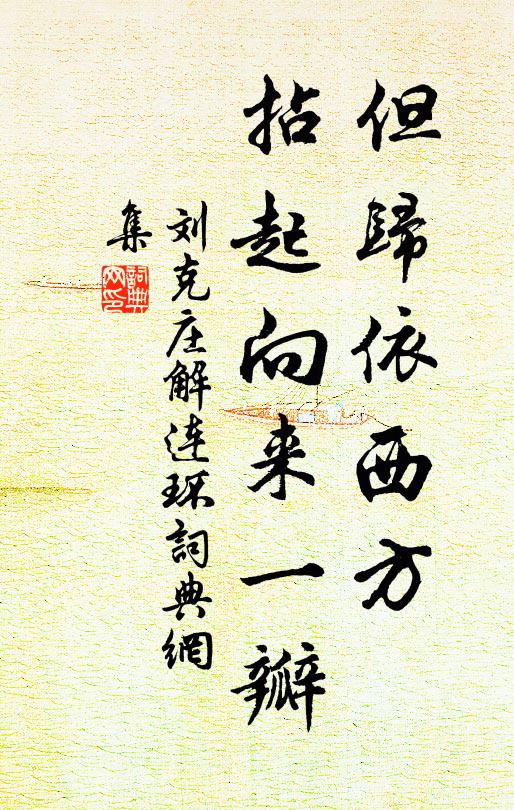 但歸依西方
拈起向来一瓣
刘克庄解连环詞典網
集
詞典網印